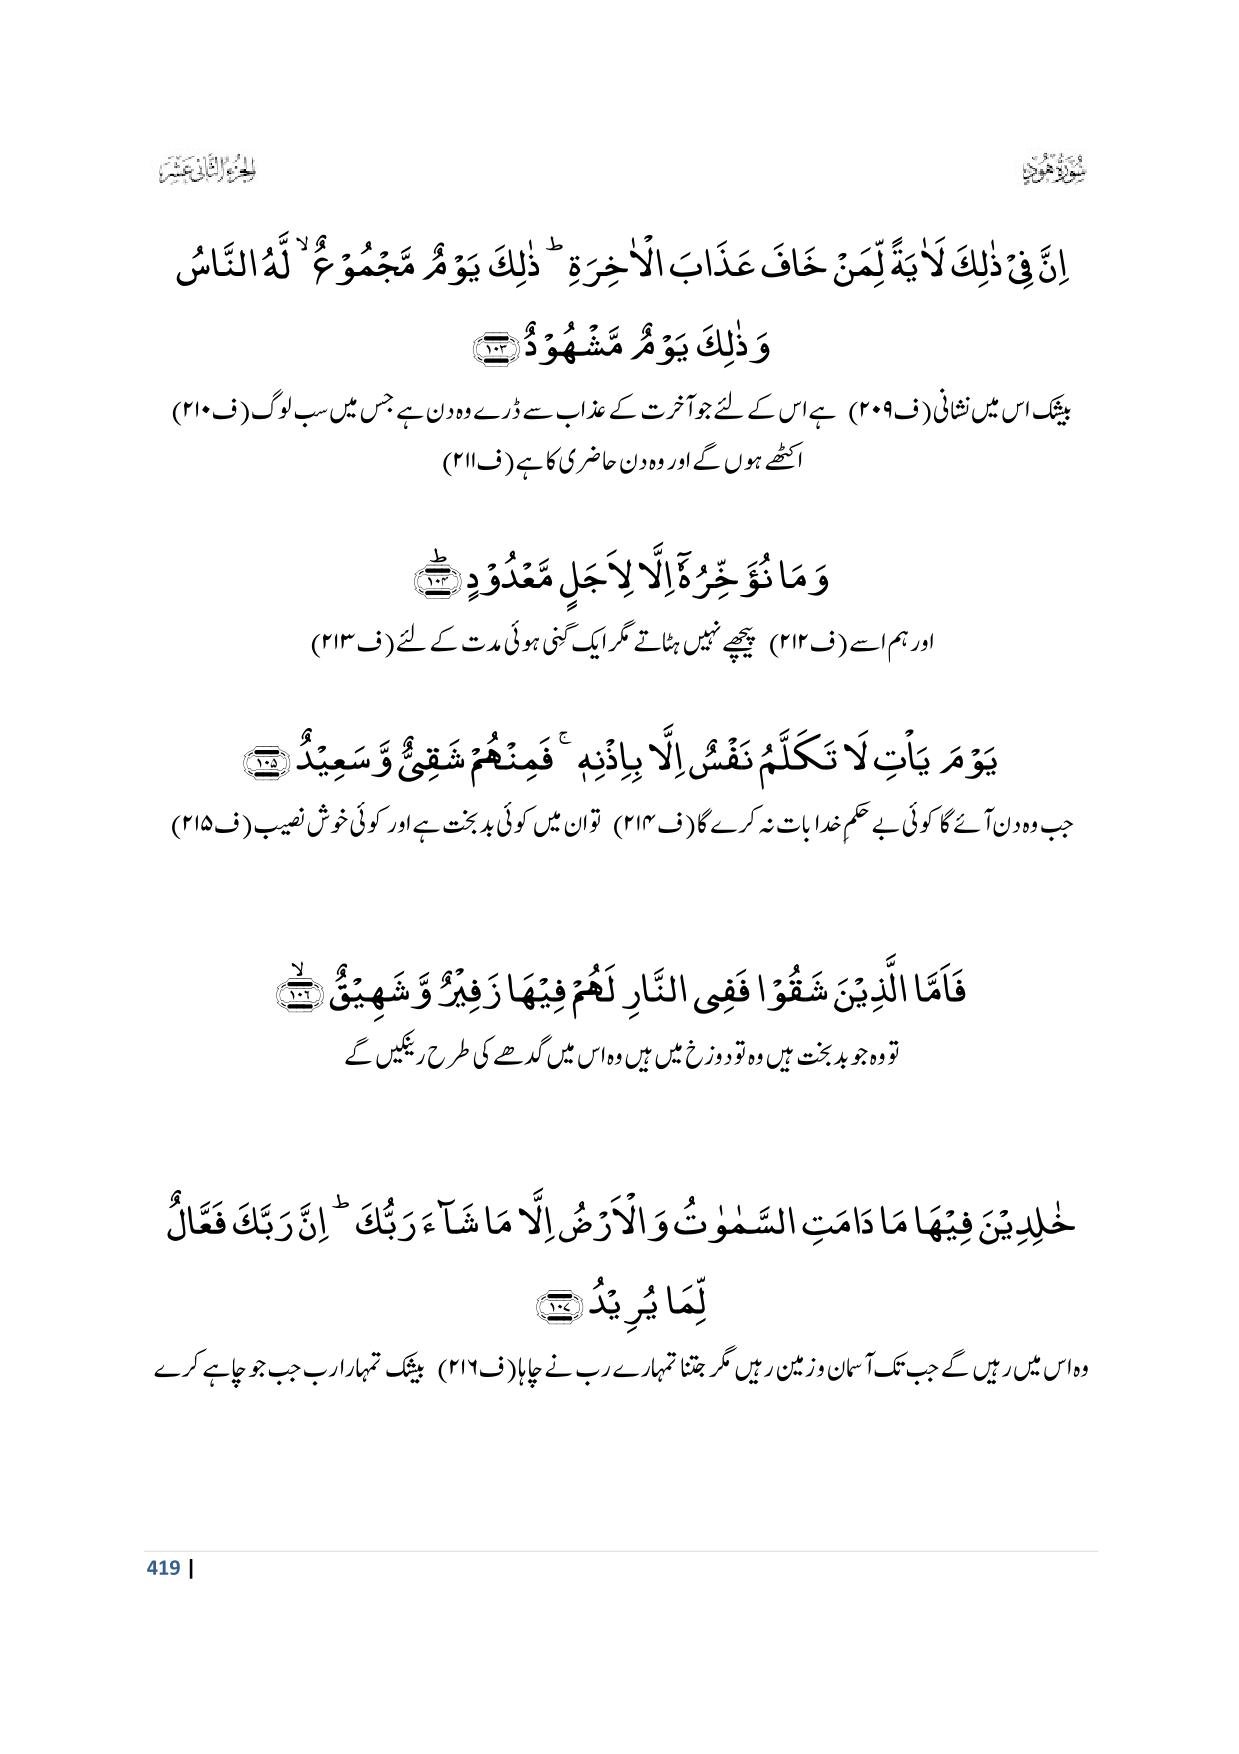 سُوْرَةُ هُوْدٍ
الجزء الثانی عشر
اِنَّ فِیْ ذٰلِكَ لَاٰیَةً لِّمَنْ خَافَ عَذَابَ الْاٰخِرَةِ ؕ ذٰلِكَ یَوْمٌ مَّجْمُوْعٌ ۙ لَّهُ النَّاسُ
وَ ذٰلِكَ یَوْمٌ مَّشْهُوْدٌ ﴿۱۰۳﴾
بیشک اس میں نشانی (ف۲۰۹) ہے اس کے لئے جو آخرت کے عذاب سے ڈرے وہ دن ہے جس میں سب لوگ (ف۲۱۰)
اکٹھے ہوں گے اور وہ دن حاضری کا ہے (ف۲۱۱)
وَ مَا نُؤَخِّرُهٗۤ اِلَّا لِاَجَلٍ مَّعْدُوْدٍ ﴿ؕ۱۰۴﴾
اور ہم اسے (ف۲۱۲) پیچھے نہیں ہٹاتے مگر ایک گِنی ہوئی مدت کے لئے (ف۲۱۳)
یَوْمَ یَاْتِ لَا تَكَلَّمُ نَفْسٌ اِلَّا بِاِذْنِهٖ ۚ فَمِنْهُمْ شَقِیٌّ وَّ سَعِیْدٌ ﴿۱۰۵﴾
جب وہ دن آئے گا کوئی بے حکمِ خدا بات نہ کرے گا (ف۲۱۴) تو ان میں کوئی بدبخت ہے اور کوئی خوش نصیب (ف۲۱۵)
فَاَمَّا الَّذِیْنَ شَقُوْا فَفِی النَّارِ لَهُمْ فِیْهَا زَفِیْرٌ وَّ شَهِیْقٌ ﴿ۙ۱۰۶﴾
تو وہ جو بدبخت ہیں وہ تو دوزخ میں ہیں وہ اس میں گدھے کی طرح رینکیں گے
خٰلِدِیْنَ فِیْهَا مَا دَامَتِ السَّمٰوٰتُ وَ الْاَرْضُ اِلَّا مَا شَآءَ رَبُّكَ ؕ اِنَّ رَبَّكَ فَعَّالٌ
لِّمَا یُرِیْدُ ﴿۱۰۷﴾
وہ اس میں رہیں گے جب تک آسمان و زمین رہیں مگر جتنا تمہارے رب نے چاہا (ف۲۱۶) بیشک تمہارا رب جب جو چاہے کرے
419 |